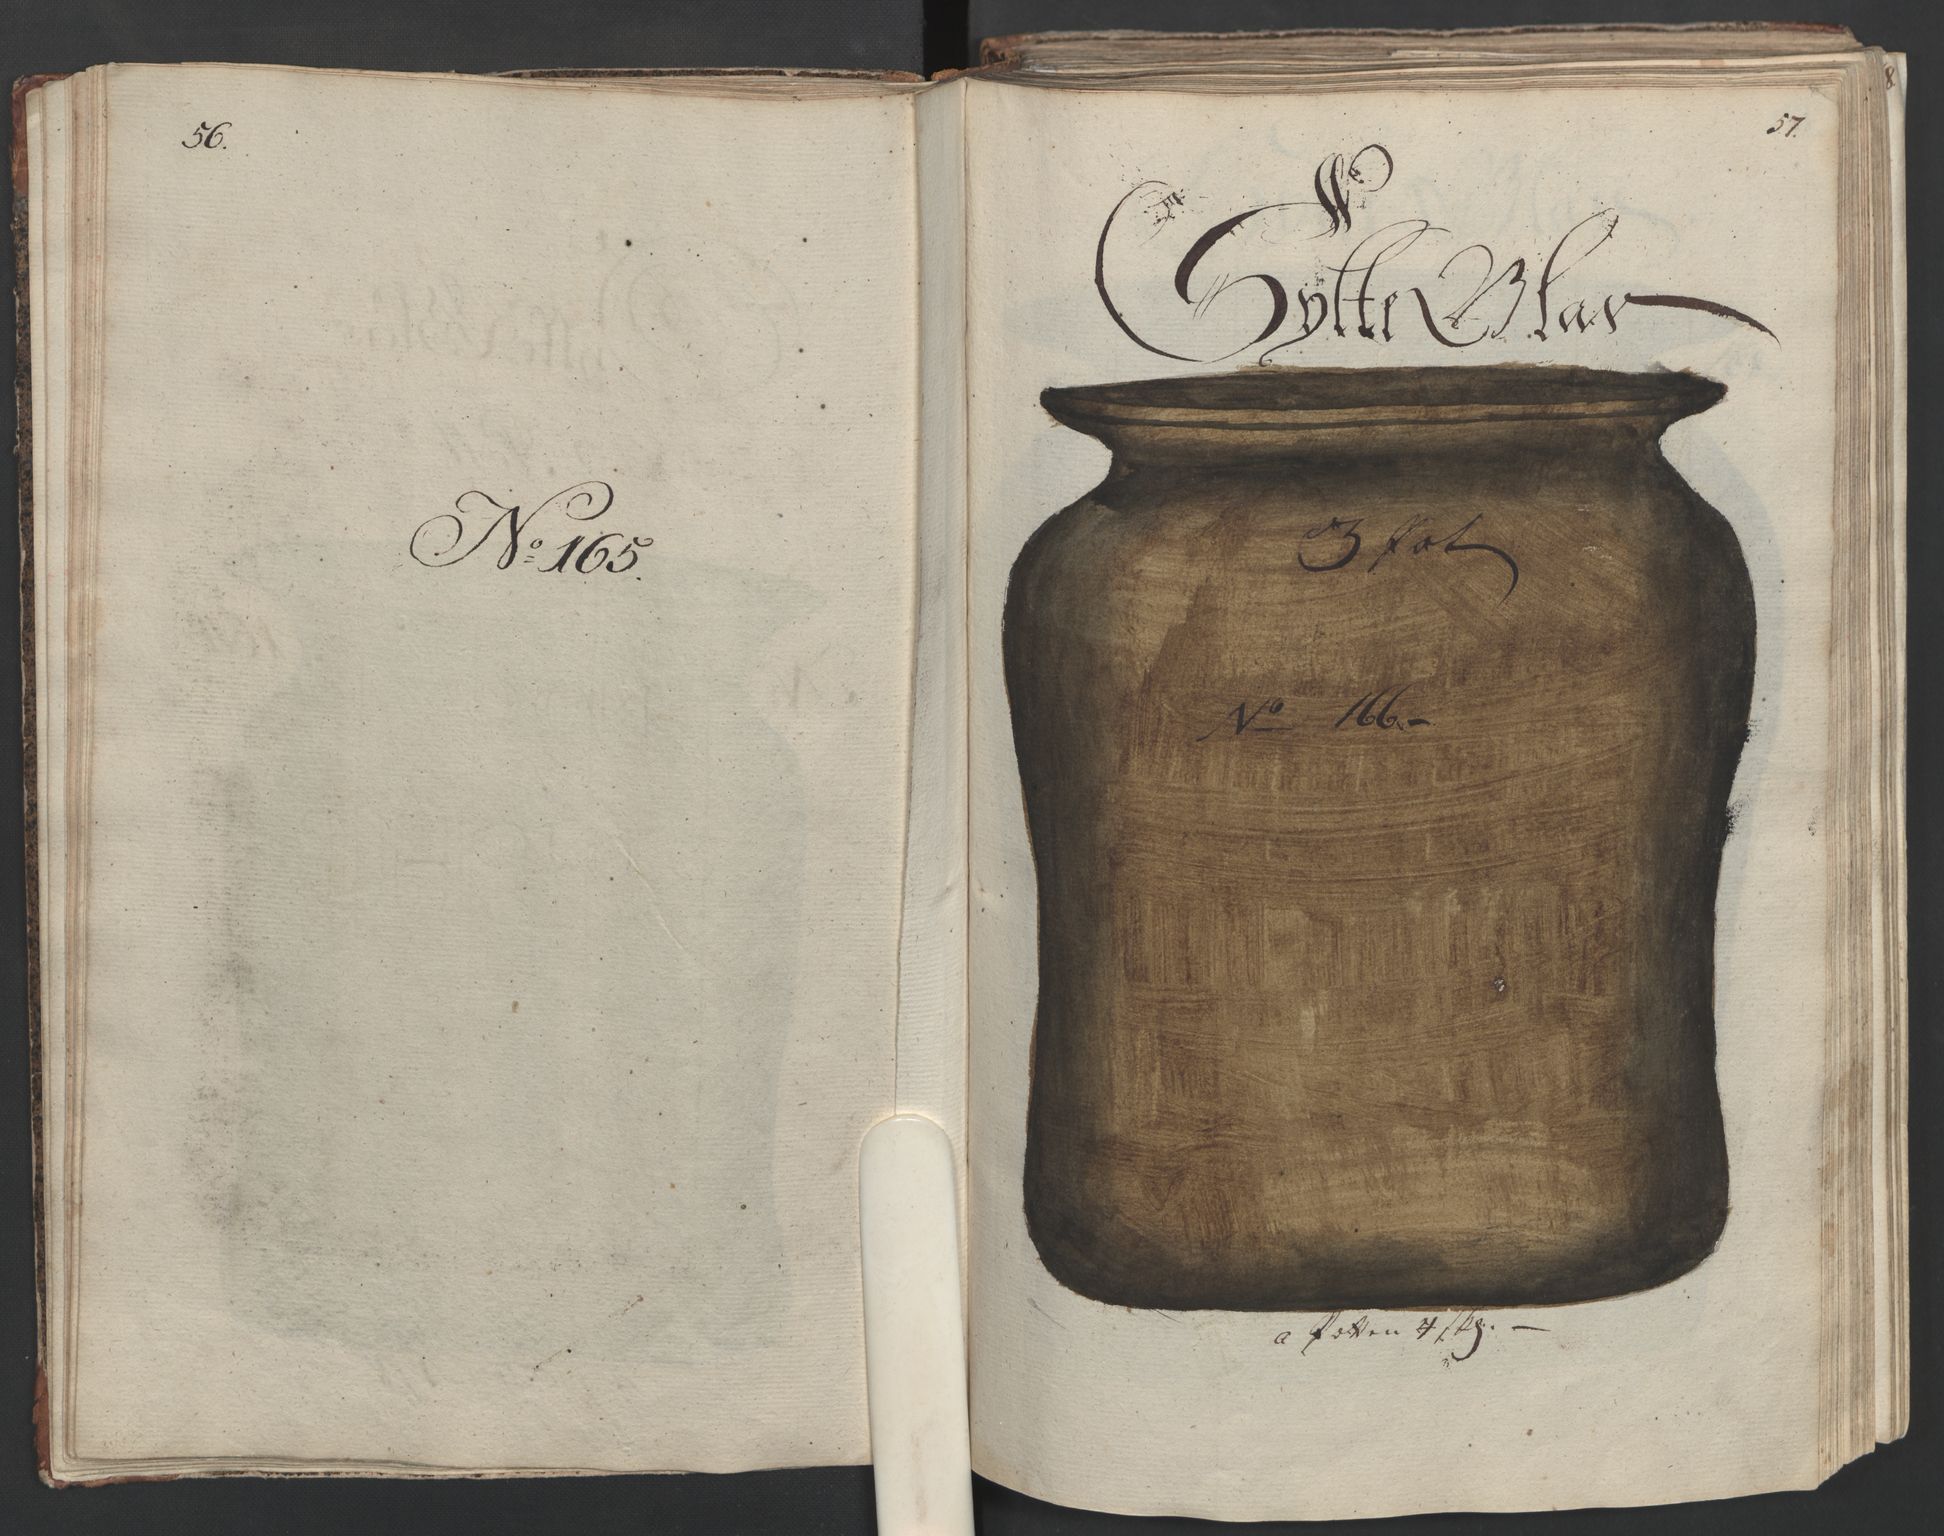 56.
No 165.
57.
Sylte Glas
3 Pot
No 166.-
a Potten 4 sk. —